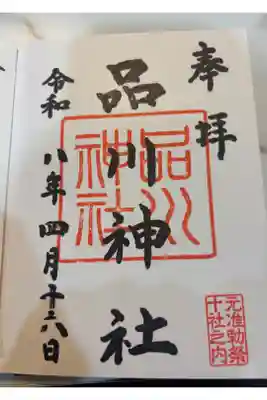 奉拝
品川神社
令和八年四月十六日
品川
神社
元准勅祭
十社之内